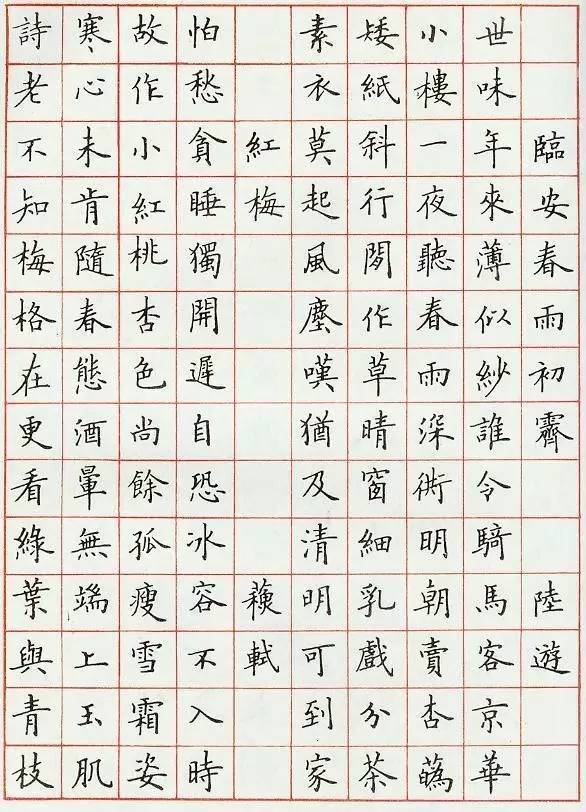 臨安春雨初霽 陸遊
世味年來薄似紗誰令騎馬客京華
小樓一夜聽春雨深衖明朝賣杏蘤
矮紙斜行閒作草晴窗細乳戲分茶
素衣莫起風塵嘆猶及清明可到家
紅梅 蘓軾
怕愁貪睡獨開遲自恐冰容不入時
故作小紅桃杏色尚餘孤瘦雪霜姿
寒心未肯隨春態酒暈無端上玉肌
詩老不知梅格在更看綠葉與青枝